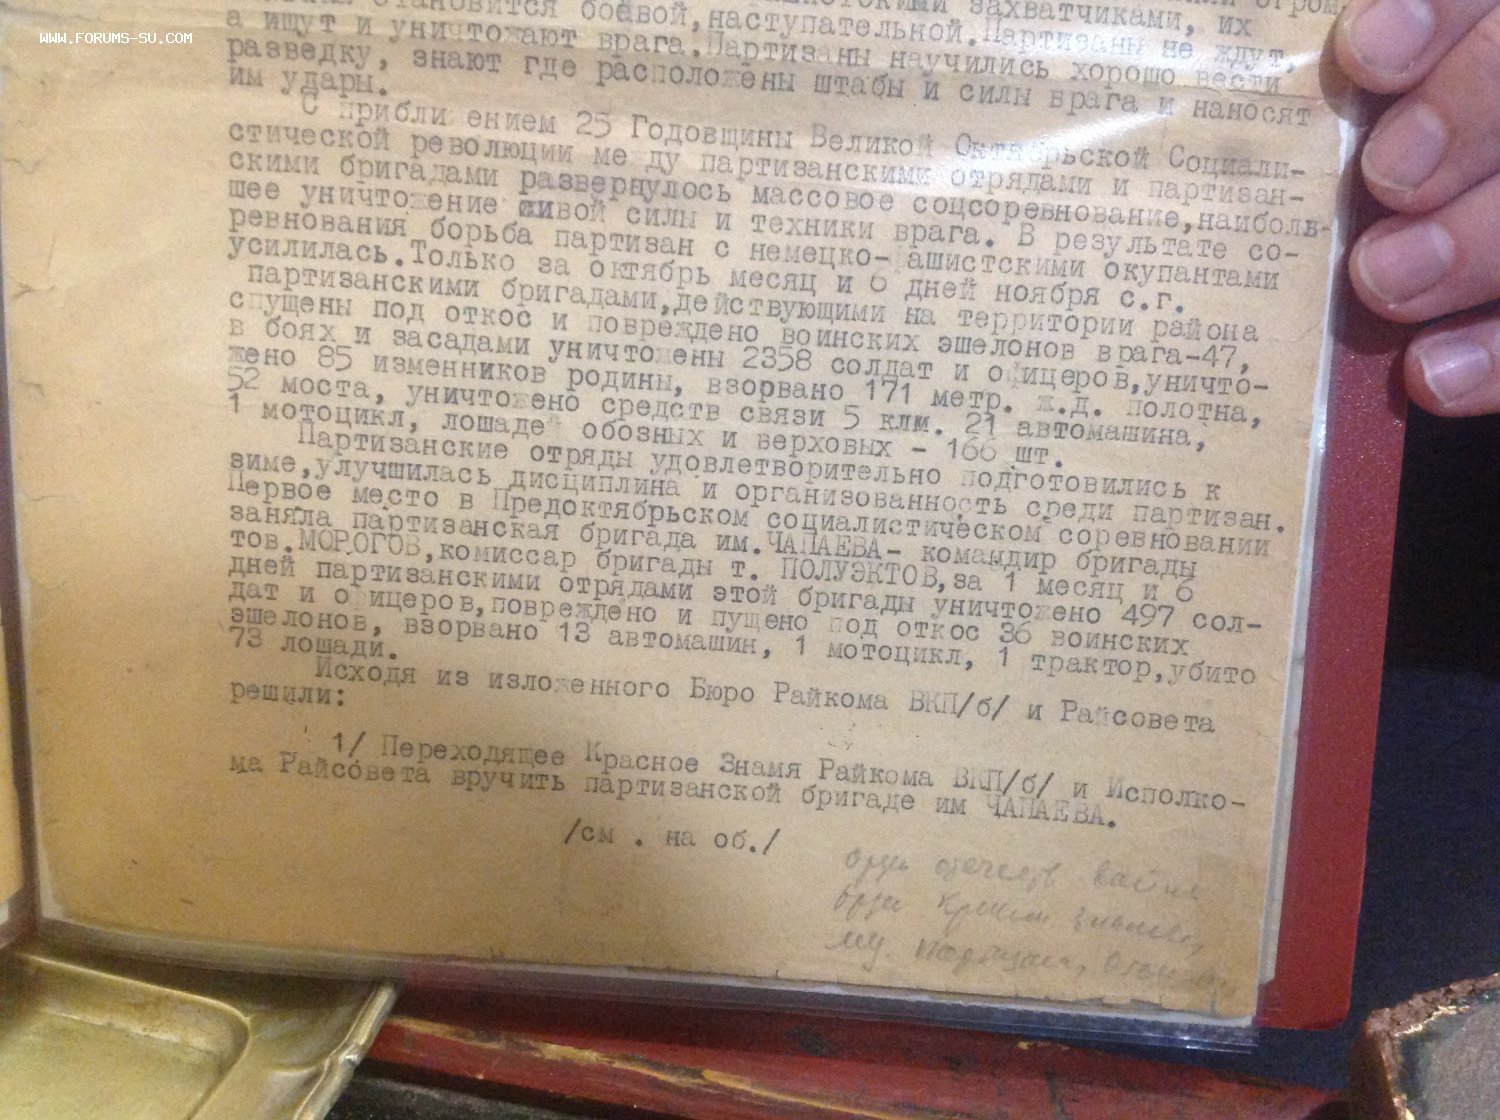 WWW.FORUMS-SU.COM
захватчиками, их
становится боевой,наступательной.Партизаны не ждут,
а ищут и уничтожают врага.Партизаны научились хорошо вести
разведку, знают где расположены штабы и силы врага и наносят
им удары.
С прибли ением 25 Годовщины Великой Октябрьской Социали-
стической революции ме ду партизанскими отрядами и партизан-
скими бригадами развернулось массовое соцсоревнование,наиболь-
шее уничтожение живой силы и техники врага. В результате со-
ревнования борьба партизан с немецко-фашистскими окупантами
усилилась.Только за октябрь месяц и 6 дней ноября с.г.
партизанскими бригадами,действующими на территории района
спущены под откос и повреждено воинских эшелонов врага-47,
в боях и засадами уничтожены 2358 солдат и офицеров,уничто-
жено 85 изменников родины, взорвано 171 метр. ж.д. полотна,
52 моста, уничтожено средств связи 5 клм. 21 автомашина,
1 мотоцикл, лошадей обозных и верховых - 166 шт.
Партизанские отряды удовлетворительно подготовились к
зиме,улучшилась дисциплина и организованность среди партизан.
Первое место в Предоктябрьском социалистическом соревновании
заняла партизанская бригада им.ЧАПАЕВА- командир бригады
тов.МОРОГОВ,комиссар бригады т. ПОЛУЭКТОВ,за 1 месяц и 6
дней партизанскими отрядами этой бригады уничтожено 497 сол-
дат и офицеров,повреждено и пущено под откос 36 воинских
эшелонов, взорвано 13 автомашин, 1 мотоцикл, 1 трактор,убито
73 лошади.
Исходя из изложенного Бюро Райкома ВКП/б/ и Райсовета
решили:
1/ Переходящее Красное Знамя Райкома ВКП/б/ и Исполко-
ма Райсовета вручить партизанской бригаде им ЧАПАЕВА.
/см . на об./